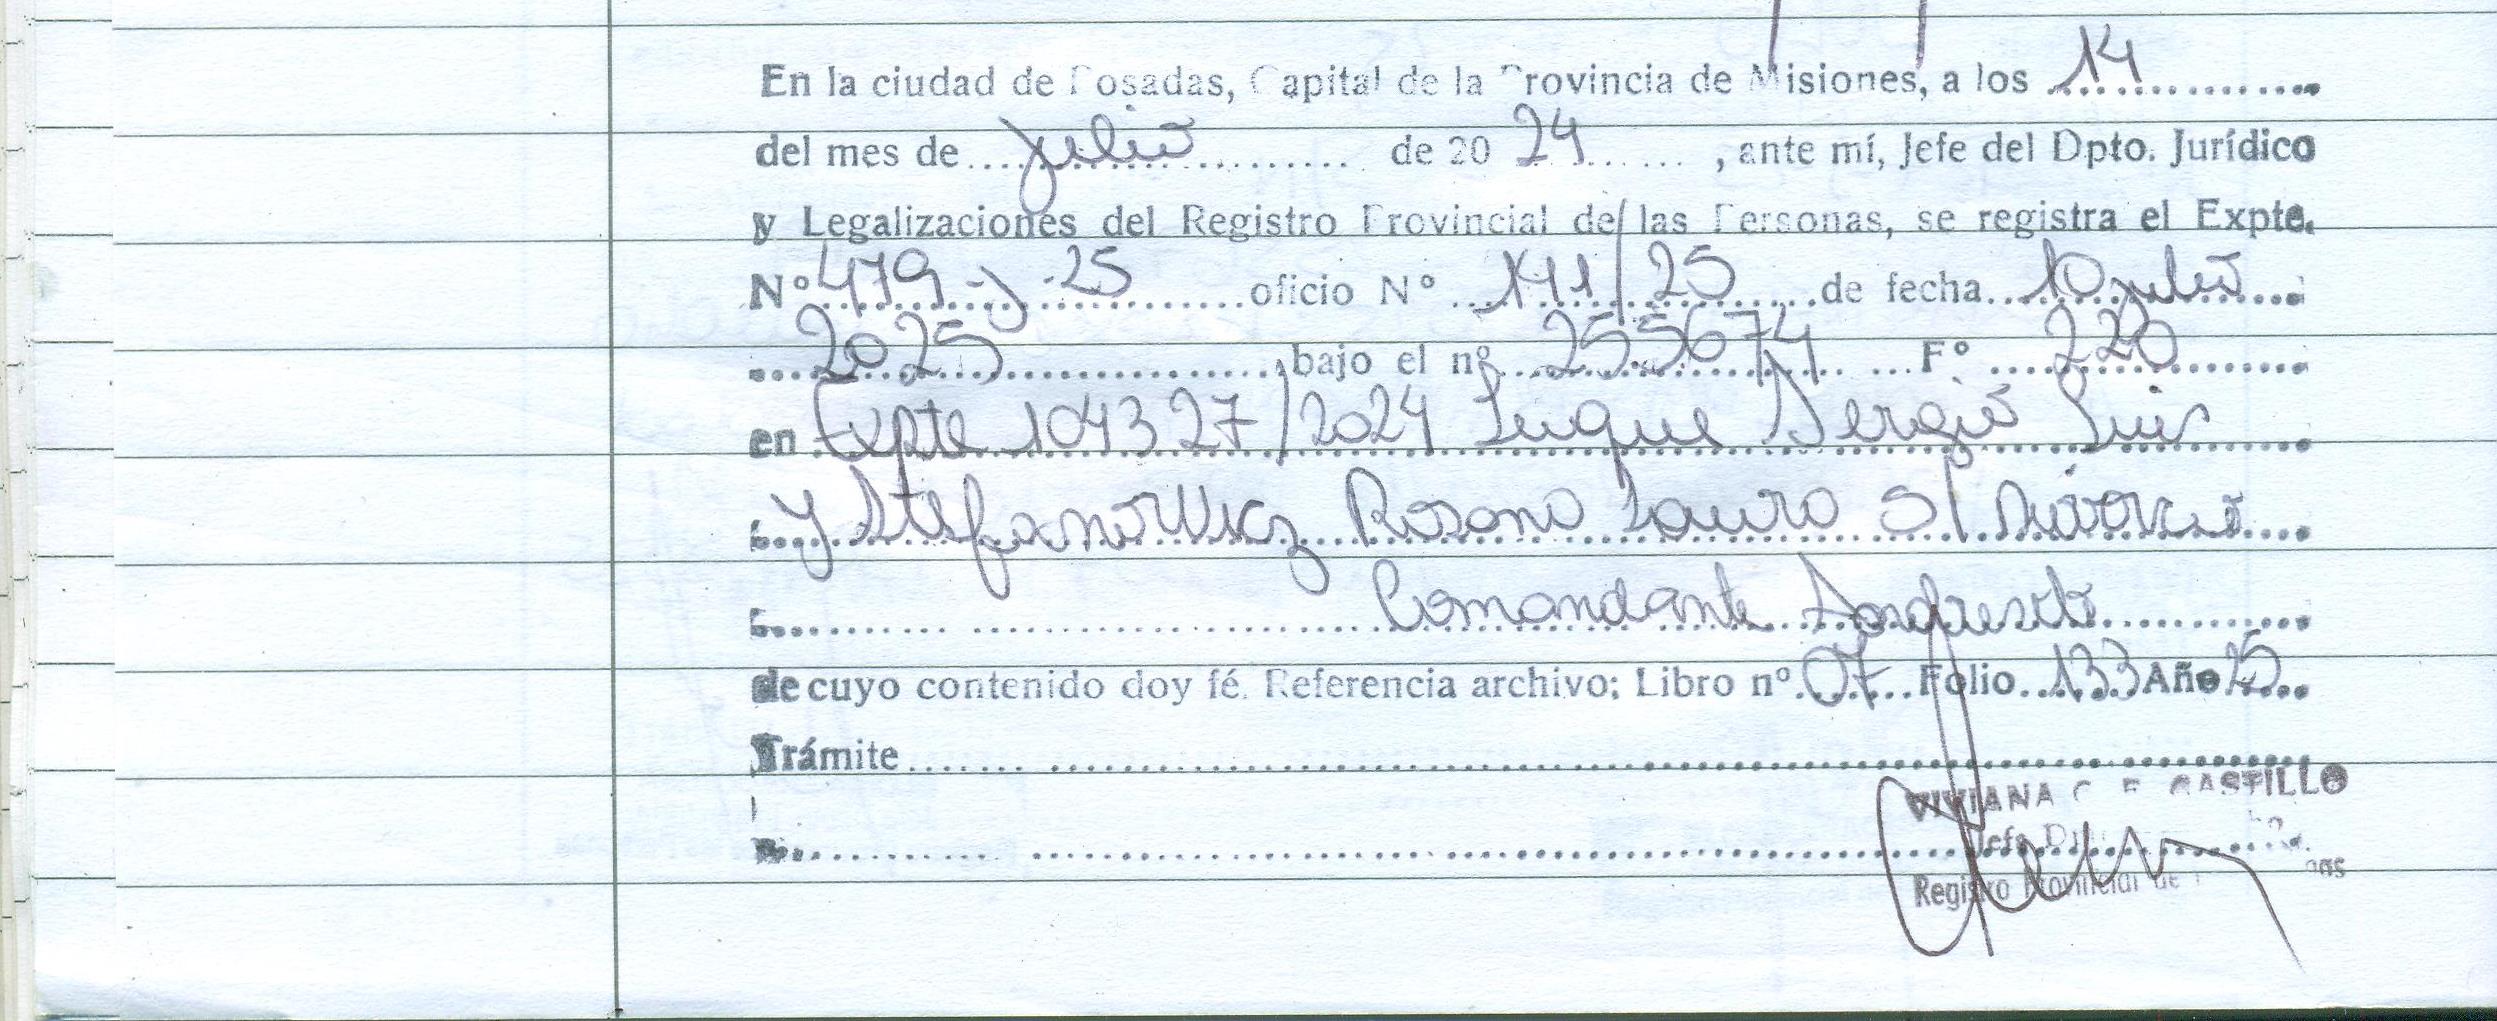 En la ciudad de Posadas, Capital de la Provincia de Misiones, a los 14
del mes de julio de 20 24, ante mí, Jefe del Dpto. Jurídico
y Legalizaciones del Registro Provincial de las Personas, se registra el Expte.
N° 479-J-25 oficio N° 141/25 de fecha 10 julio
2025 bajo el nº 255674 F° 220
en Expte 104327/2024 Luque Sergio Luis
y Stefanowicz Rosana Laura S/ Divorcio
Comandante Andresito
de cuyo contenido doy fé. Referencia archivo; Libro nº 07 Folio 133 Año 25
Trámite
VIVIANA C. E. CASTILLO
Jefe
Registro Provincial de